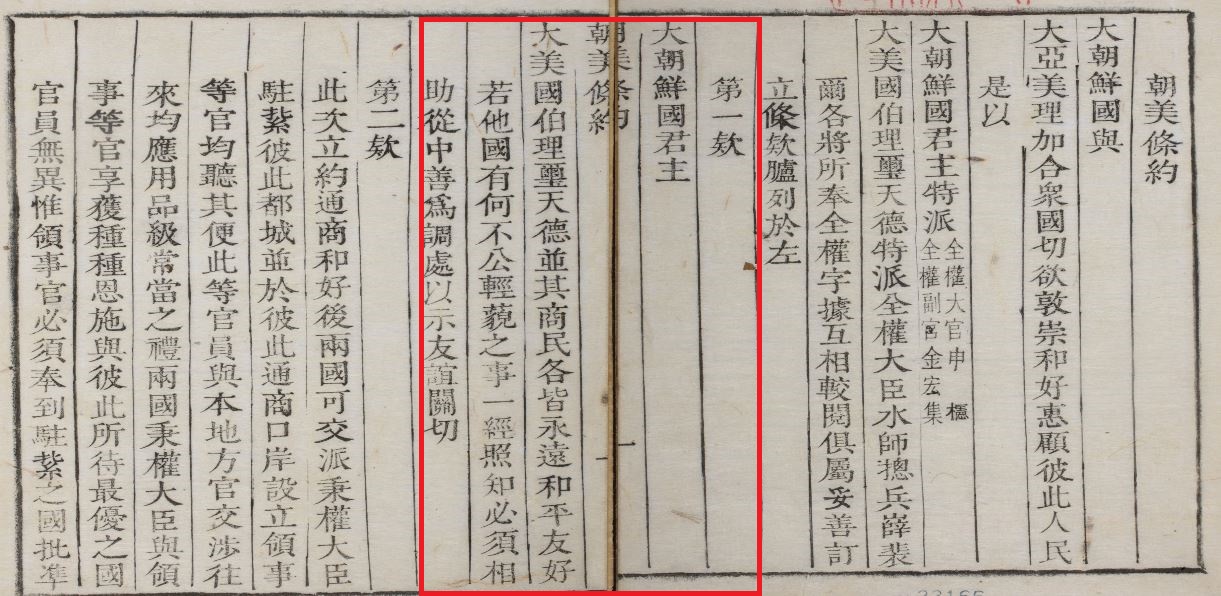 朝美條約
大朝鮮國與
大亞美理加合衆國切欲敦崇和好惠顧彼此人民
是以
大朝鮮國君主特派全權大官申櫶
全權副官金宏集
大美國伯理璽天德特派全權大臣水師摠兵薛裴
爾各將所奉全權字據互相較閱俱屬妥善訂
立條欵臚列於左
第一欵
大朝鮮國君主
朝美條約 一
大美國伯理璽天德並其商民各皆永遠和平友好
若他國有何不公輕藐之事一經照知必須相
助從中善爲調處以示友誼關切
第二欵
此次立約通商和好後兩國可交派秉權大臣
駐紮彼此都城並於彼此通商口岸設立領事
等官均聽其便此等官員與本地方官交涉往
來均應用品級常當之禮兩國秉權大臣與領
事等官享獲種種恩施與彼此所待最優之國
官員無異惟領事官必須奉到駐紮之國批準